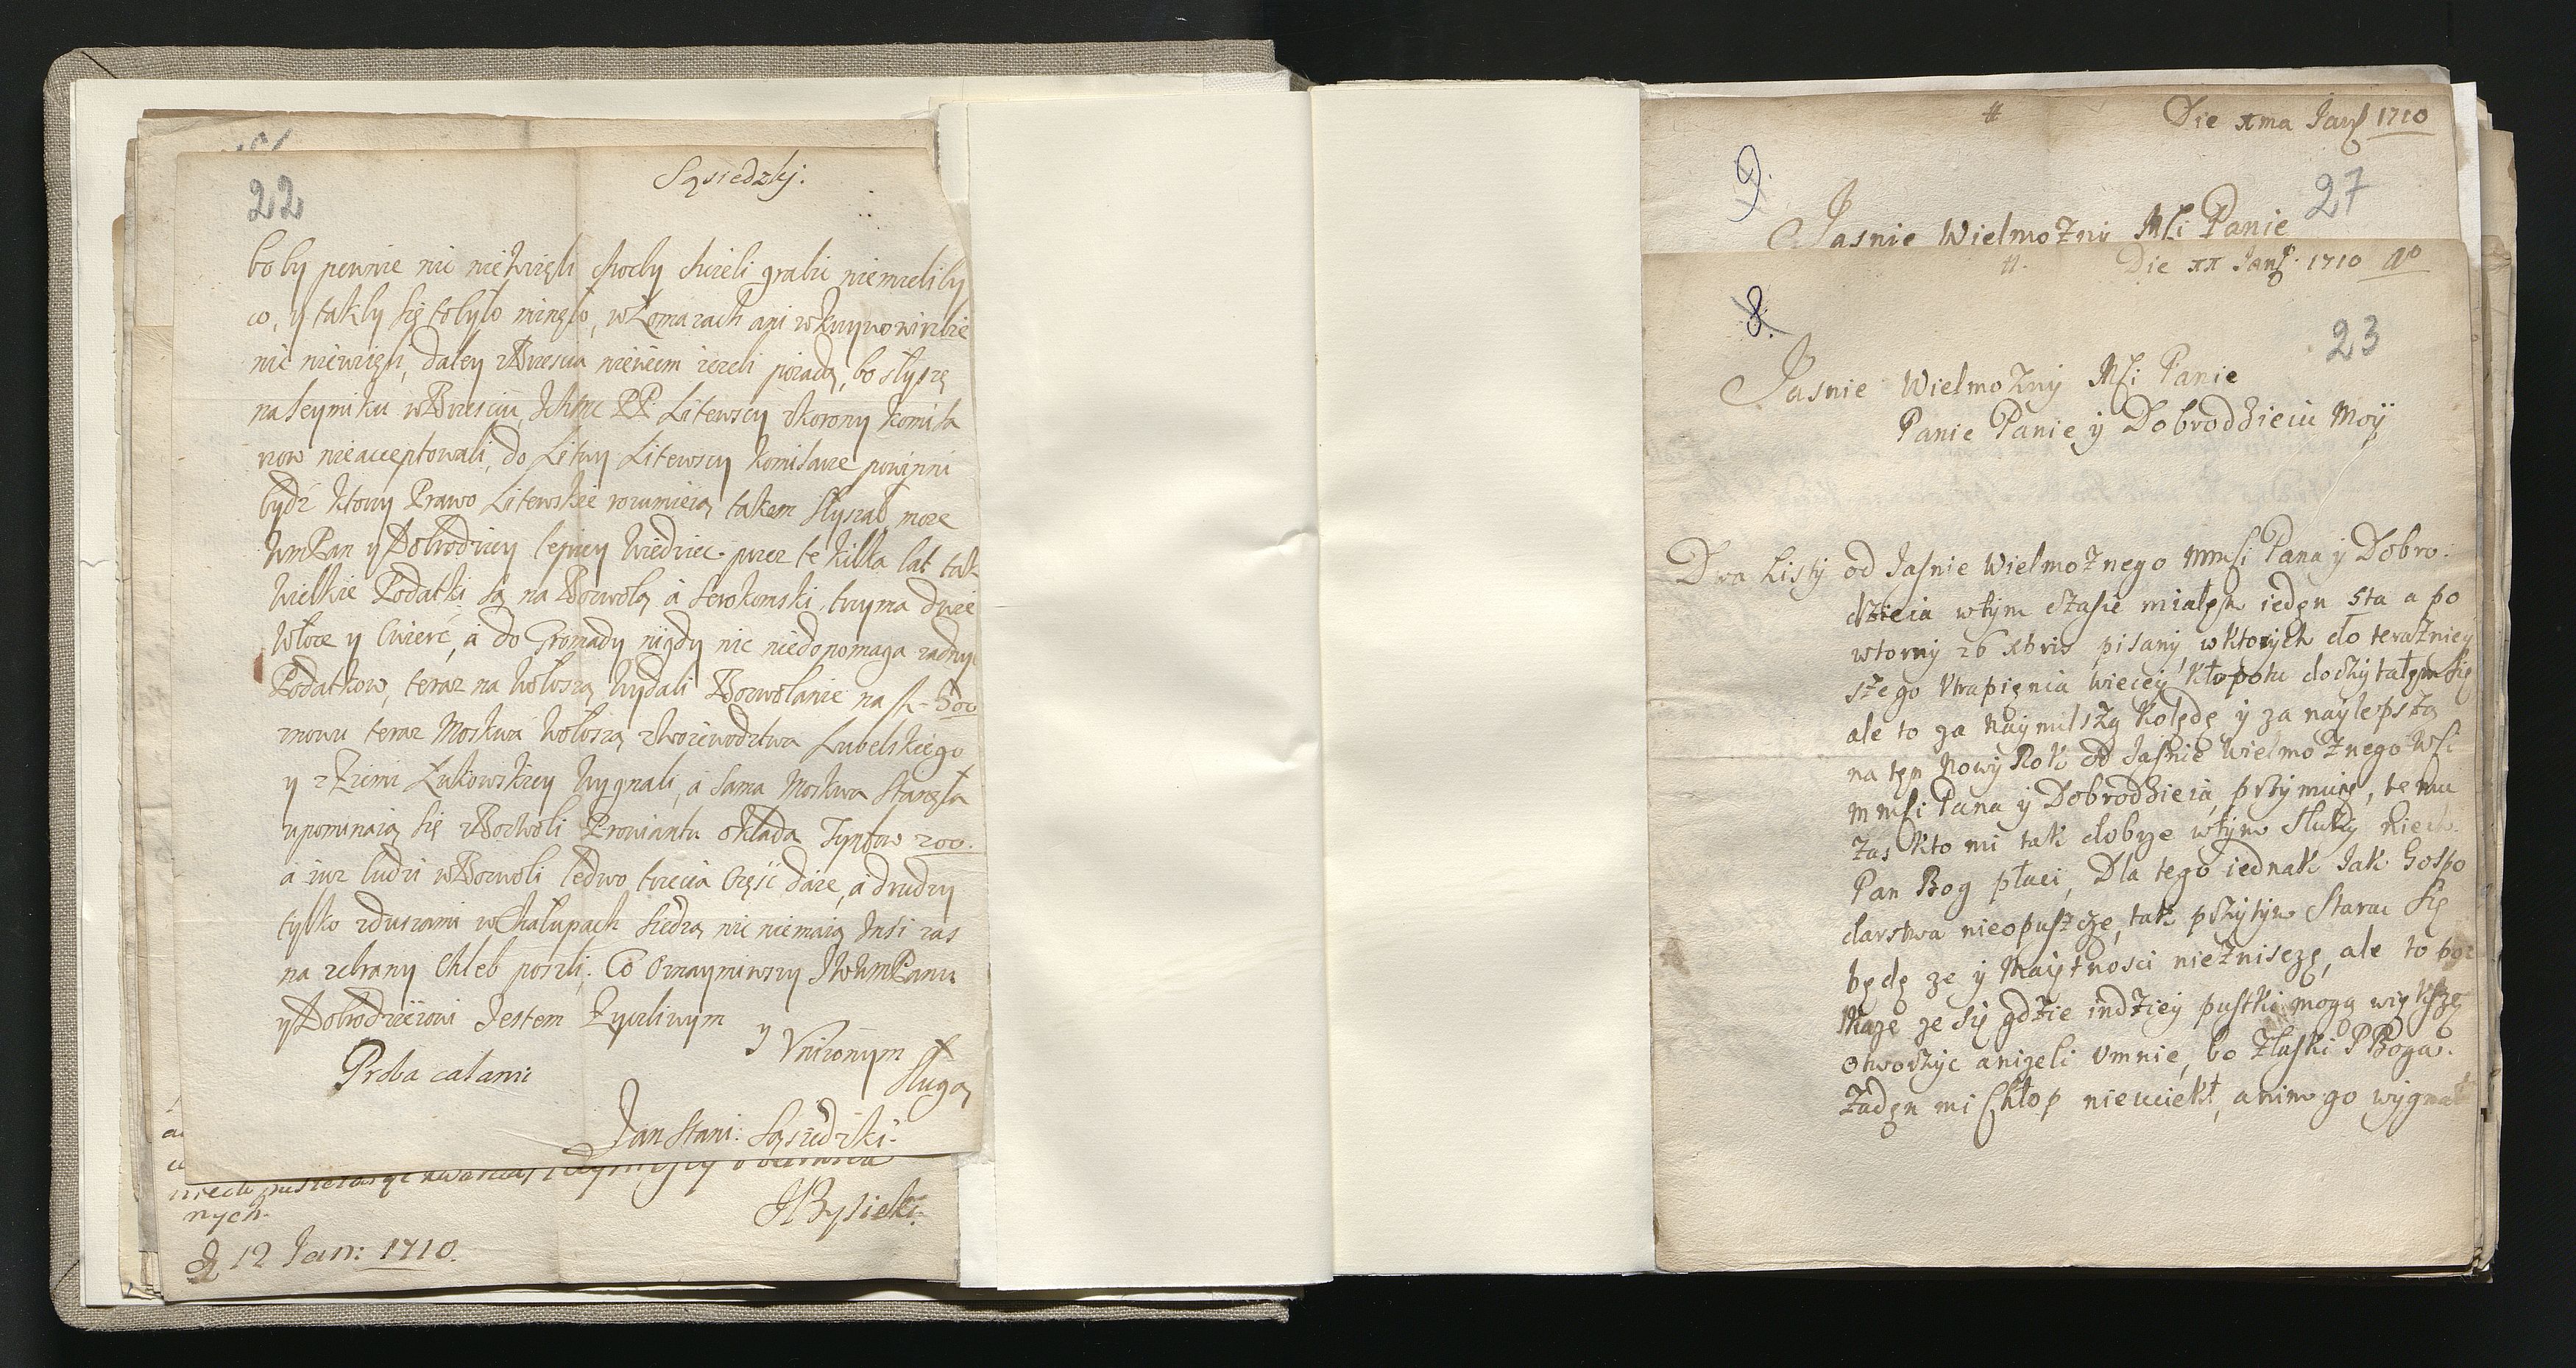 22
Sąsiedzkj.
bo by pewnie nic niewzięli choćby chcieli grabić niemieliby
co, y takby się tobyło minęło, w Łomazach ani w Krzywowirzbie
nic niewzięli, daley z Brzescia niewiem iezeli poiadą, bo słyszę
na Seymiku w Brzesciu, Ichmc PP. Litewscy z korony komisa
rzow nieacceptowali, do Litwy Litewscy komisarze powinni
bydź ktorzy Prawo Litewskie rozumieią takem słyszał, moze
WmPan y Dobrodziey lepiey wiedziec. przez te kilka lat tak
wielkie Podatki są na Rozwolą a Serokomski trzyma dwie
włoce y cwierć, a do Gromady nigdy nic niedopomaga zadnych
Podatkow, teraz na wołoszą wydali Rozwolanie na fl. 500
znowu teraz Moskwa wołoszą z woiewodztwa Lubelskiego
y z Ziemi Łukowskiey wygnali, a sama Moskwa stanęła
upominaią się z Rozwoli Prowiantu oklada Tynfow 200.
a iuz ludzi w Rozwoli ledwo trzecia częsć daie, a drudzy
tylko z duszami w chałupach siedzą nic niemaią Insi zas
na zebrany chleb poszli. Co oznaymiwszy JWWmPanu
y Dobrodzieiowi Jestem Zyczliwym
y Unizonym
Sługą
Proba calami
Jan Stani: Sąsiedzki.
nych.
JBysicki.
D 12 Jan: 1710.
# Die xma Jan 1710
9.
27
Jasnie Wielmozny Mści Panie
#. Die xx Jan. 1710 Ao
8.
23
Jasnie Wielmozny Mści Panie
Panie Panie y Dobrodzieiu Moÿ
Dwa Listy od Jasnie Wielmoznego Mmści Pana y Dobro:
dzieia w tym czasie miałem ieden 5ta a po
wtorny 26 xbris pisany, w ktorych do terazniey
szego utrapienia wiecey kłopotu doczytałem się
ale to za naymilszą Kolędę y za naylepszą
na ten Nowy Rok od Jasnie Wielmoznego WSci
mmści Pana y Dobrodzieia, przymuię, temu
zas kto mi tak dobrze w tym słuzy niech
Pan Bog płaci, Dla tego iednak Jak Gospo
darstwa nieopuszczę, tak przytym starac się
będę ze y Maiętnosci nieznisczę, ale to
ze się gdzie indziey pustki mogą większe
otworzyc anizeli u mnie, bo z łaski P Boga.
Zaden mi Chłop nieuciekł, anim go wygnał